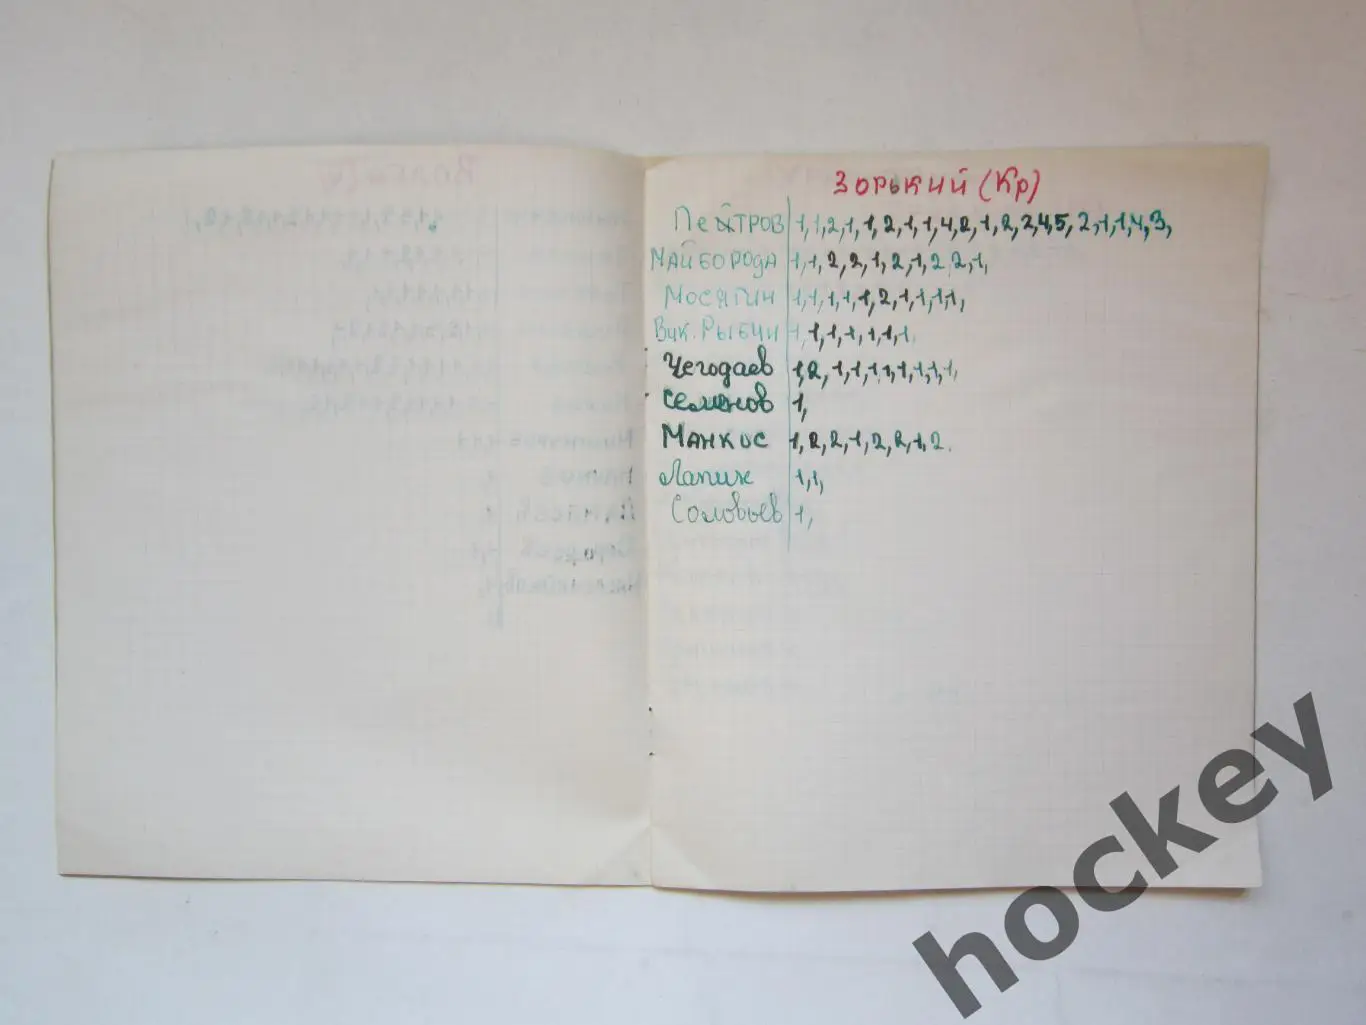 ЗОРЬКИЙ (Кр)
ПЕТРОВ 1,1,2,1,1,2,1,1,4,2,1,2,2,4,5,2,1,1,4,3,
МАЙБОРОДА 1,1,2,2,1,2,1,2,2,1,
МОСЯГИН 1,1,1,1,1,2,1,1,1,1,
Вик. РЫБИН 1,1,1,1,1,1,1,
Чегодаев 1,2,1,1,1,1,1,1,1,1,
Семенов 1,
МАНКОС 1,2,2,1,2,2,1,2.
Лапин 1,1,
Соловьев 1,
hockey